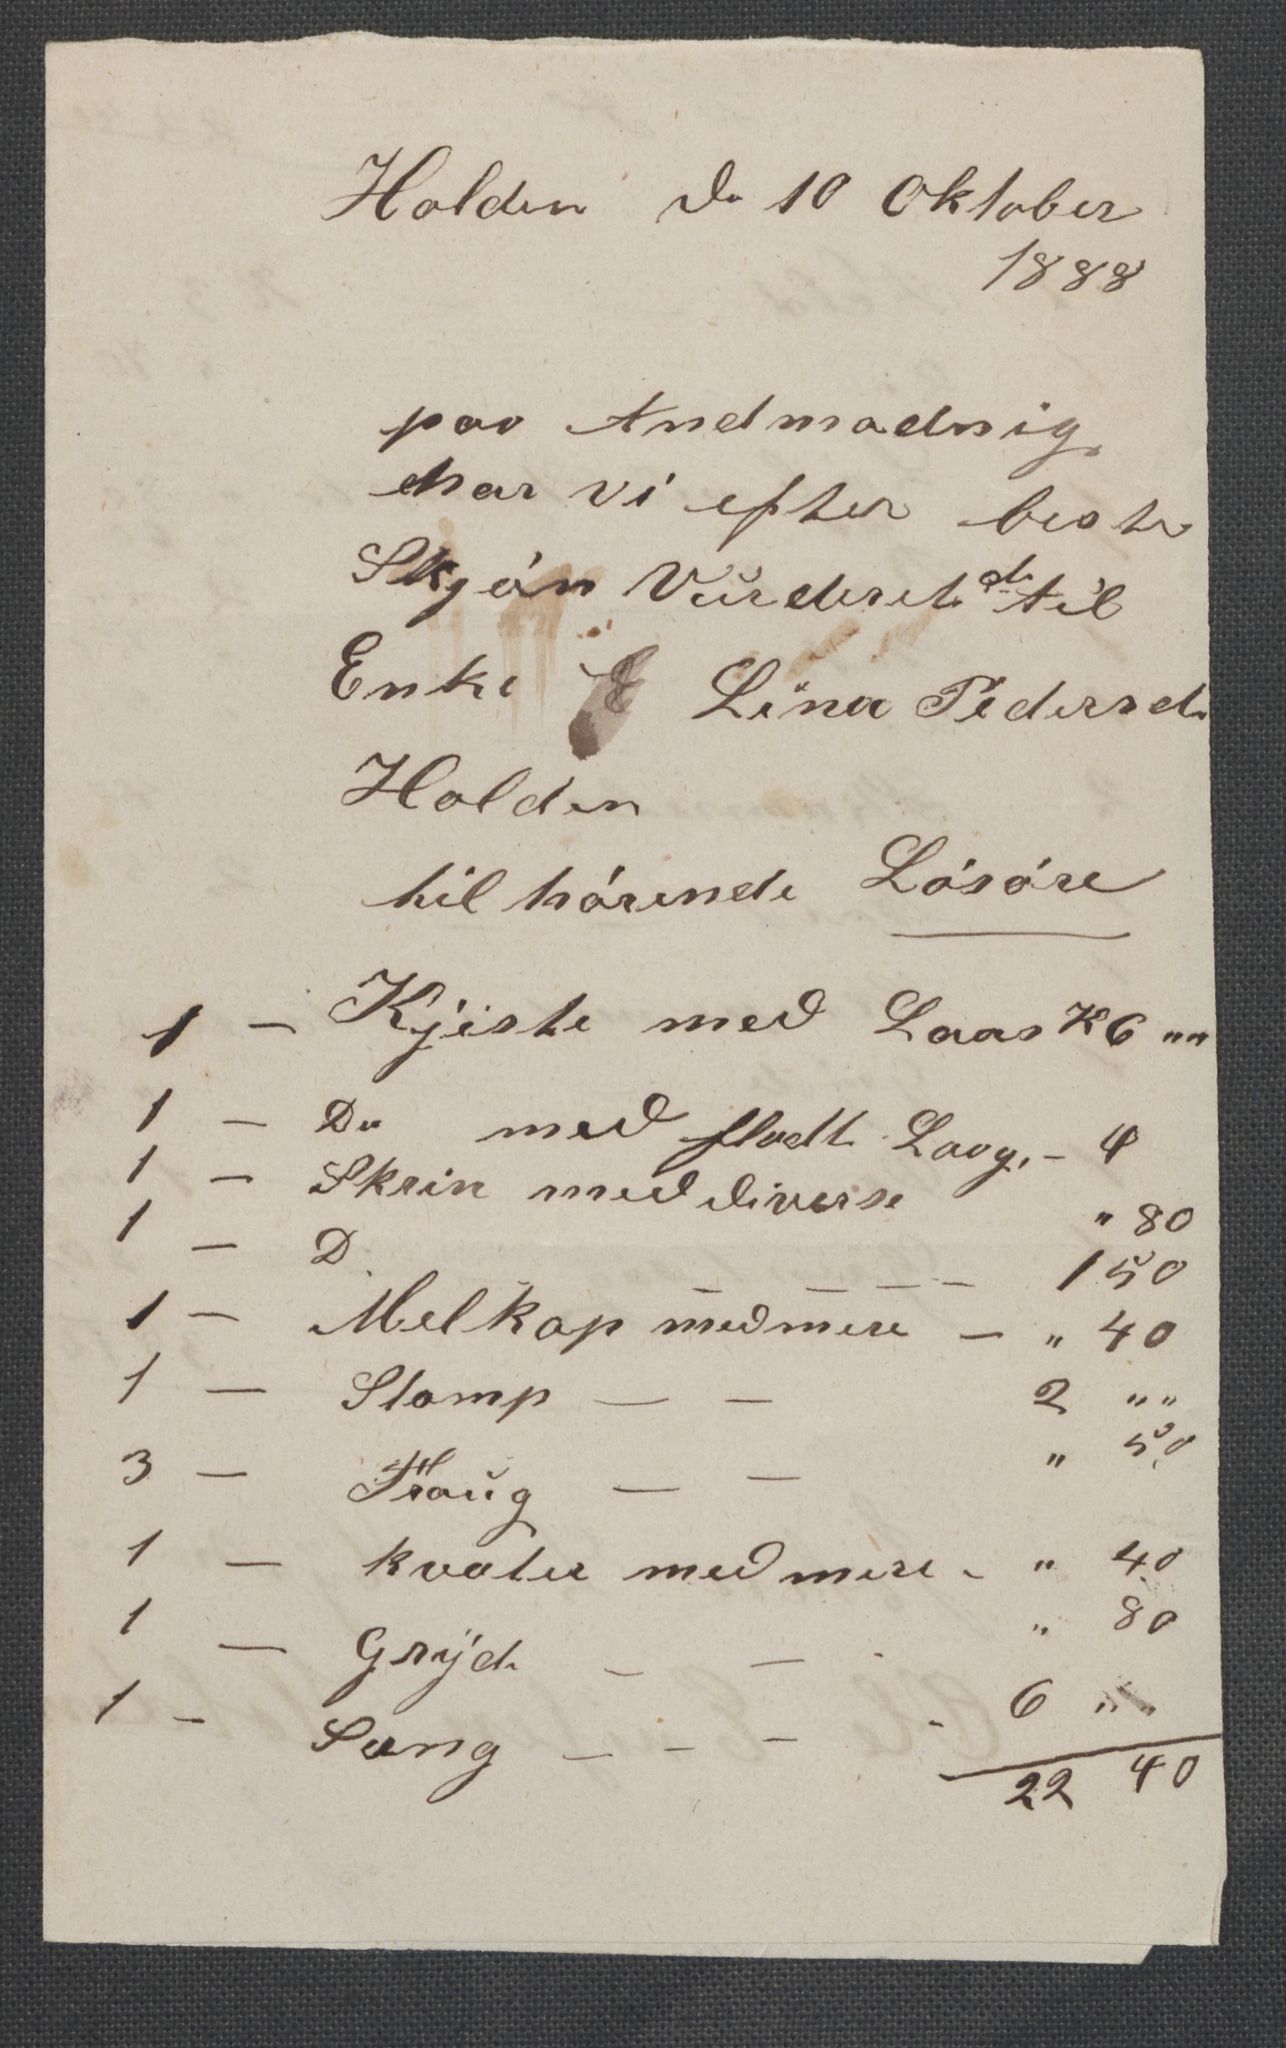 Holden d. 10 Oktober
1888
paa Andmadnig
har vi efter beste
Skjön Vürderet de til
Enke E Lina Pedersd.
Holden
til hörende Lösöre
1 — Kjiste med Laas K 6 " "
1 — Do med fladt Laag. - 4
1 — Skrin med diverse " 80
1 — D. — — — — 1 50
1 — Melkop med mere — " 40
1 — Stamp — — 2 " "
3 — Traüg — — " 50
1 — kvater med mere - " 40
1 — Gryde — — " 80
1 — Sæng — — — - 6 " "
22 40